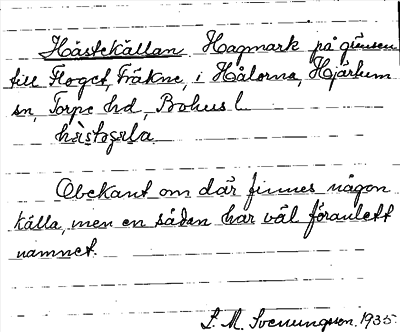 Hästekällan Hagmark på gränsen
till Floget, Fräkne, i Hålorna, Hjärtum
sn, Torpe hd, Bohus l.
Obekant om där finnes någon
källa, men en sådan har väl föranlett
namnet.
S. M. Svenungsson. 1935.